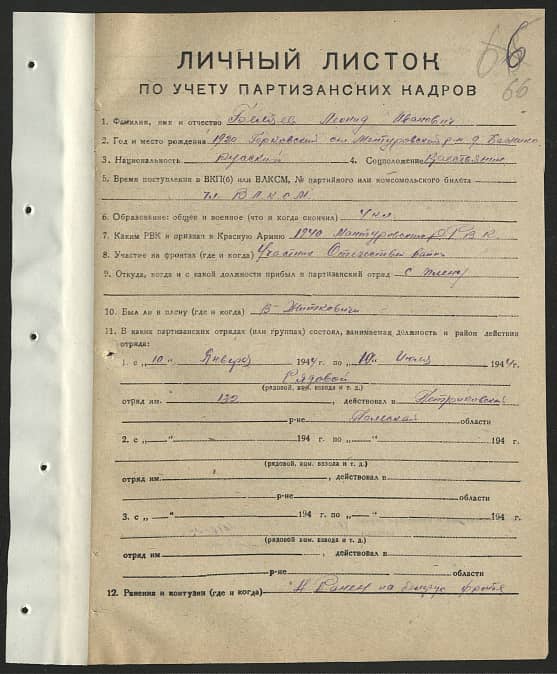 66
66
ЛИЧНЫЙ ЛИСТОК
ПО УЧЕТУ ПАРТИЗАНСКИХ КАДРОВ
1. Фамилия, имя и отчество Леонид Иванович
2. Год и место рождения 1920 Горьковский обл. Мантуровской р-н д.
3. Национальность Русский 4. Соцположение
5. Время поступления в ВКП(б) или ВЛКСМ, № партийного или комсомольского билета
Чл. ВЛКСМ
6. Образование: общее и военное (что и когда окончил) 4 кл.
7. Каким РВК и призван в Красную Армию 1940 Мантуровским РВК
8. Участие на фронтах (где и когда) Участник Отечествен войны
9. Откуда, когда и с какой должности прибыл в партизанский отряд с плену
10. Был ли в плену (где и когда) В Житковичи
11. В каких партизанских отрядах (или группах) состоял, занимаемая должность и район действия
отряда:
1. с „10“ Января 1944 г. по „10“ Июля 1944 г.
Рядовой
(рядовой, ком. взвода и т. д.)
отряд им. 132, действовал в Петриковском
р-не Полеская области
2. с „ “ 194 г. по „ “ 194 г.
(рядовой, ком. взвода и т. д.)
отряд им. , действовал в
р-не области
3. с „ “ 194 г. по „ “ 194 г.
(рядовой, ком. взвода и т. д.)
отряд им , действовал в
р-не области
12. Ранения и контузии (где и когда) Ранен на фронте